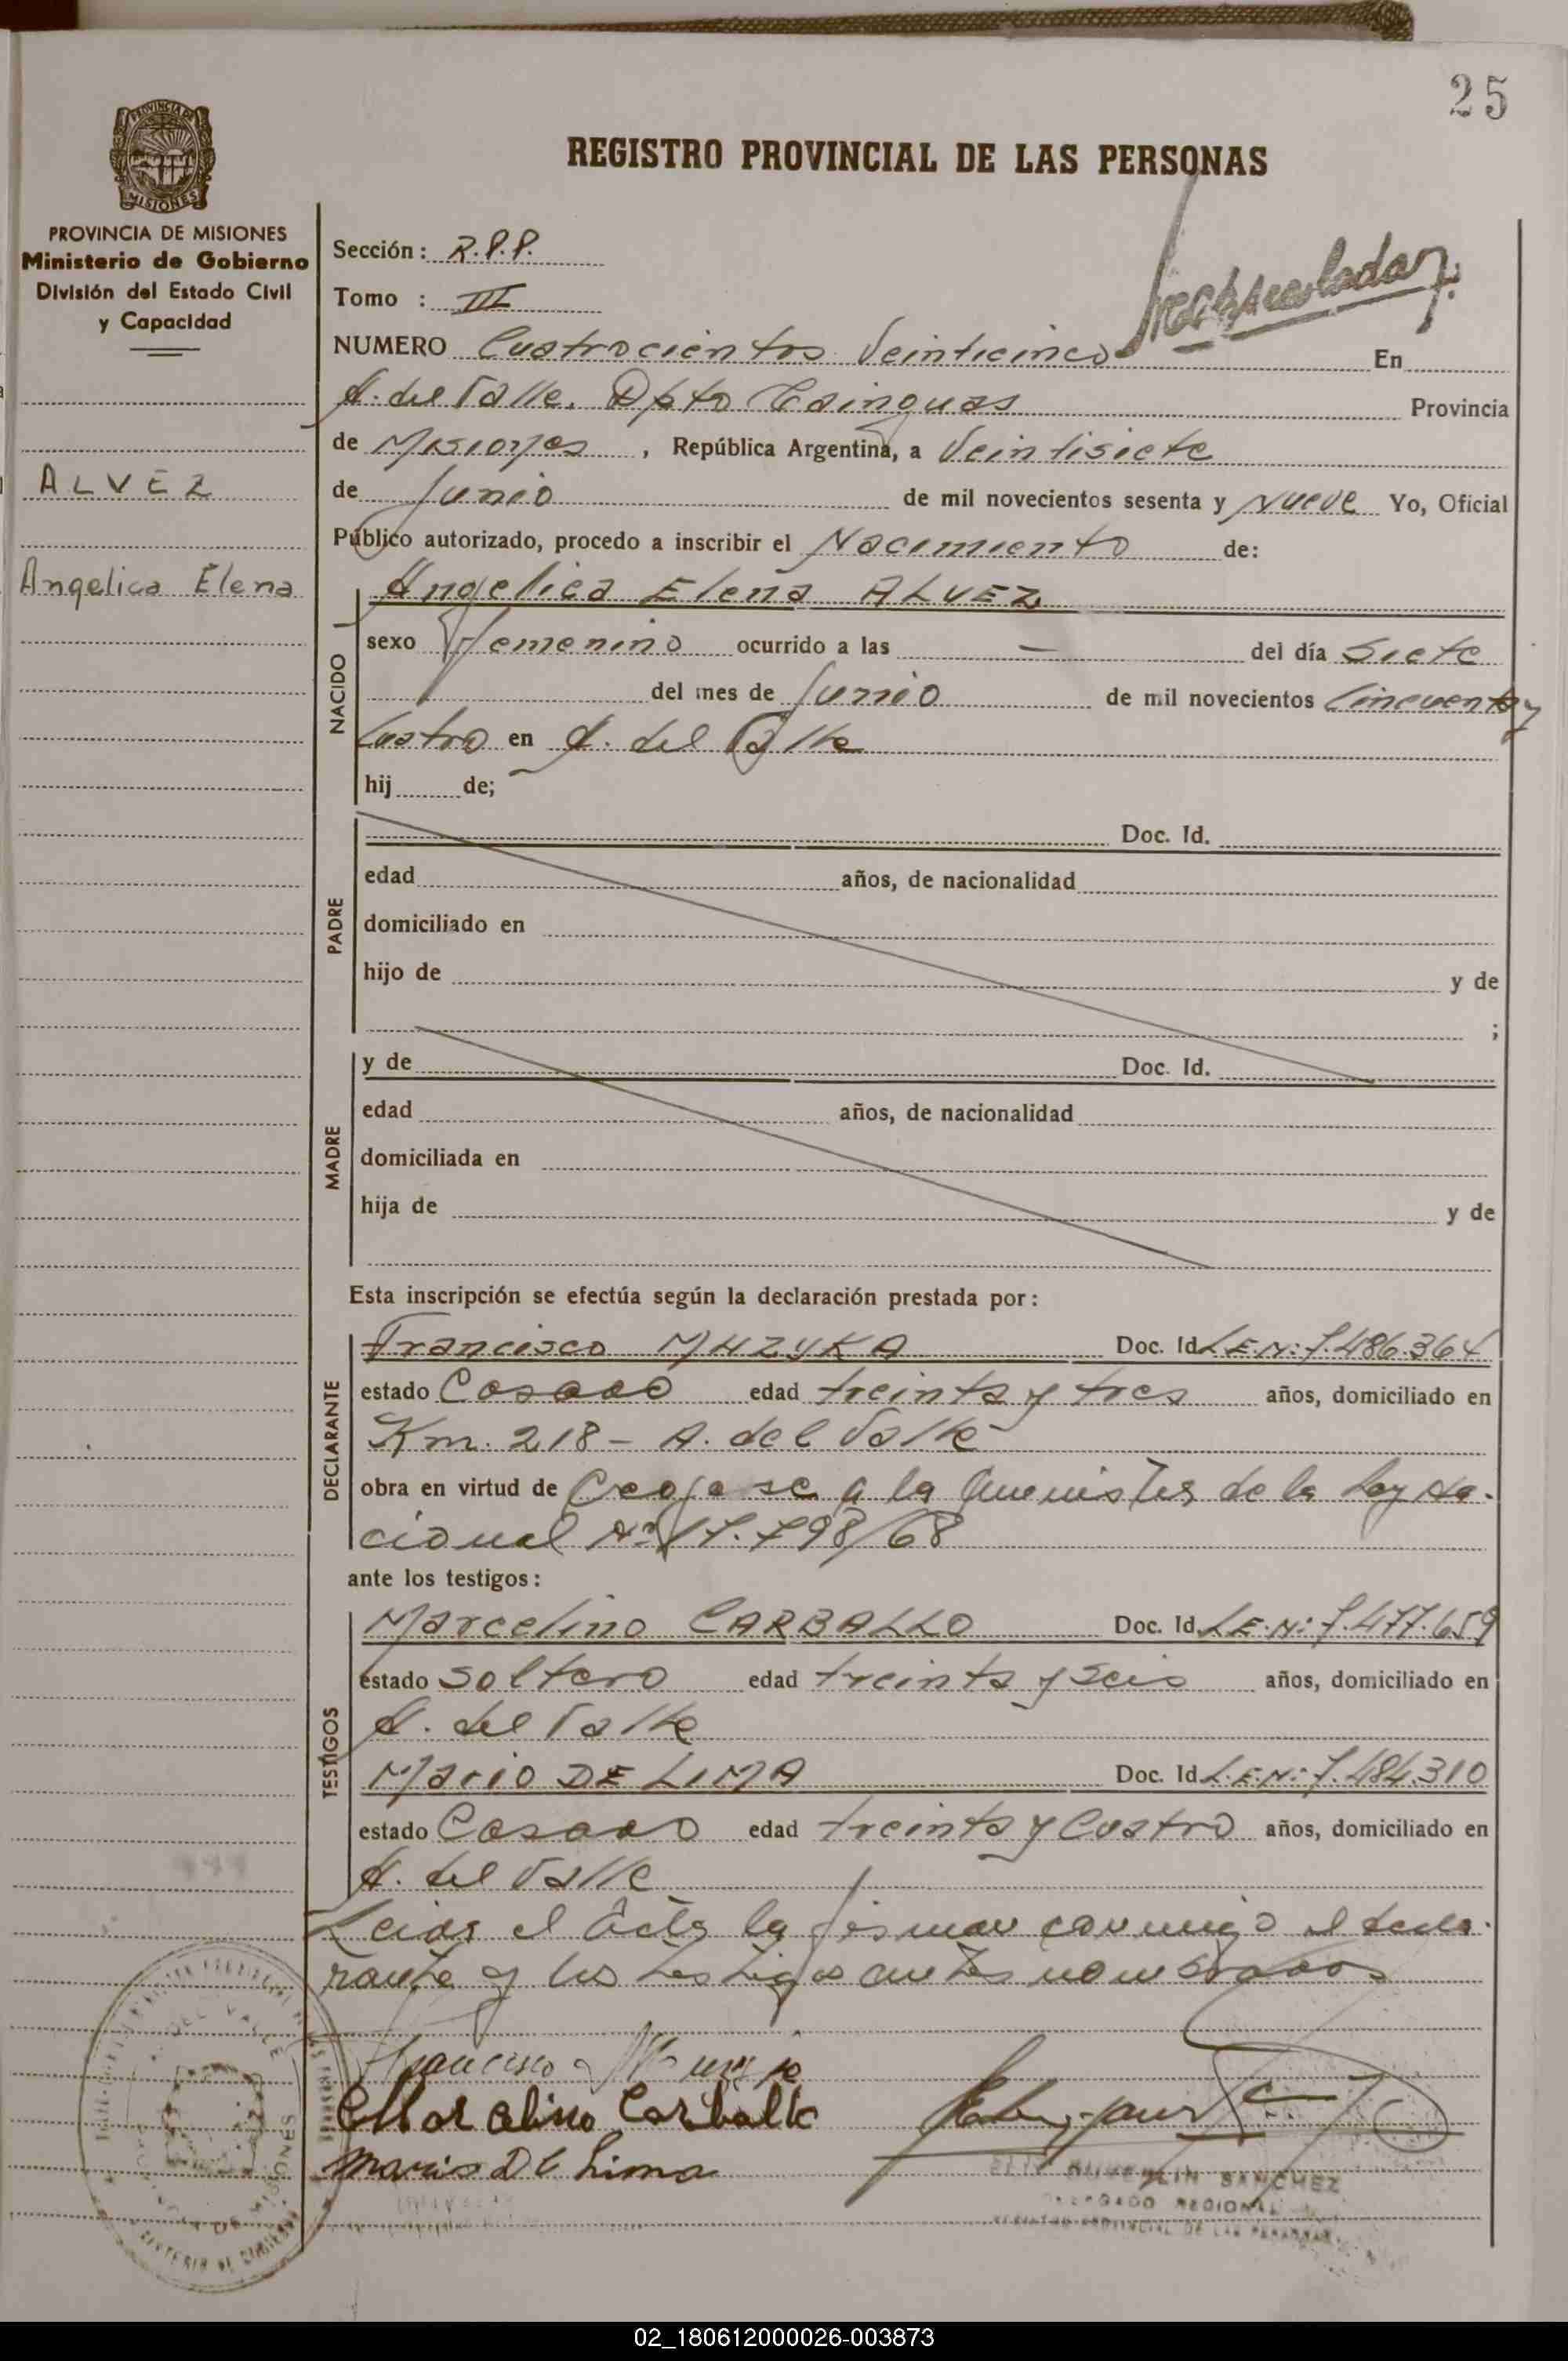 25
REGISTRO PROVINCIAL DE LAS PERSONAS
PROVINCIA DE MISIONES
Ministerio de Gobierno
División del Estado Civil
y Capacidad
ALVEZ
Angelica Elena
Sección: R.P.P.
Tomo : III
NUMERO Cuatrocientos Veinticinco En
A. del Valle. Dpto Cainguas Provincia
de Misiones, República Argentina, a Veintisiete
de Junio de mil novecientos sesenta y Nueve Yo, Oficial
Público autorizado, procedo a inscribir el Nacimiento de:
NACIDO
Angelica Elena ALVEZ
sexo femenino ocurrido a las — del día Siete
del mes de Junio de mil novecientos Cincuenta y
Cuatro en A. del Valle
hij de;
PADRE
Doc. Id.
edad años, de nacionalidad
domiciliado en
hijo de y de
;
MADRE
y de Doc. Id.
edad años, de nacionalidad
domiciliada en
hija de y de
Esta inscripción se efectúa según la declaración prestada por:
DECLARANTE
Francisco MUZYKA Doc. Id L.E.N: 7.486.364
estado Casado edad treinta y tres años, domiciliado en
Km. 218 - A. del Valle
obra en virtud de a la de la Ley Na-
cional Nº 17.798/68
ante los testigos:
TESTIGOS
Marcelino CARBALLO Doc. Id L.E.N: 7.477.659
estado Soltero edad treinta y seis años, domiciliado en
A. del Valle
Mario DE LIMA Doc. Id L.E.N: 7.484.310
estado Casado edad treinta y Cuatro años, domiciliado en
A. del Valle
Leida el Acta la firman conmigo el decla-
rante y los testigos antes nombrados
Francisco
Marcelino Carballo
Mario De Lima
SANCHEZ
DELEGADO REGIONAL
REGISTRO PROVINCIAL DE LAS PERSONAS
02_180612000026-003873